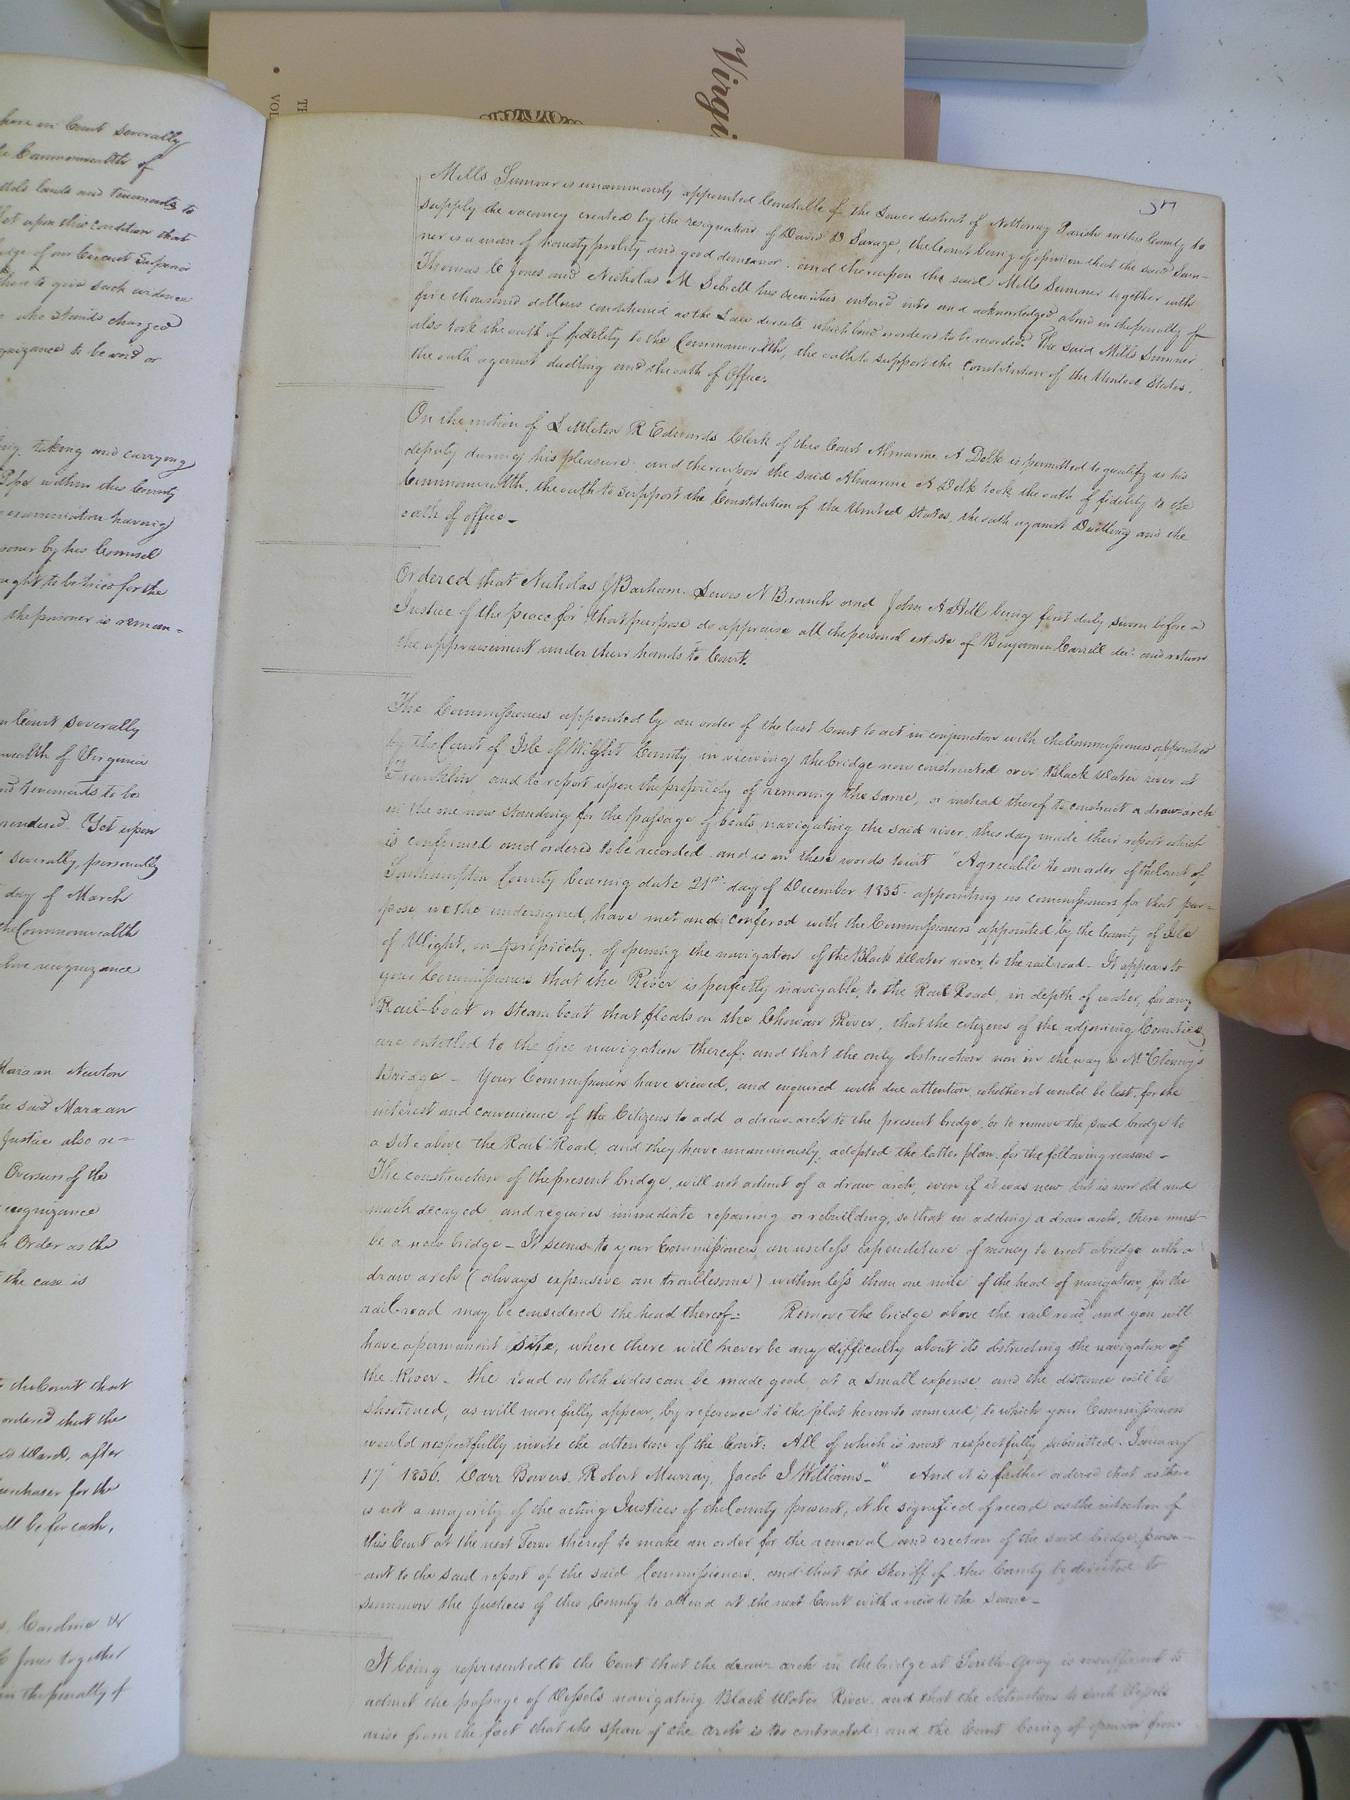 Virgi
VOL
TH
pear in Court Severally
the Commonwealth of
lands and tenements to
Yet upon this condition that
Judge of our Circuit Superior
there to give such evidence
who stands charged
recognizance to be void or
taking and carrying
within this County
examination having
prisoner by his Counsel
ought to be tried for the
the prisoner is reman=
in Court severally
wealth of Virginia
and tenements to be
rendered. Yet upon
severally, personally
day of March
the Commonwealth
above recognizance
Maraan Newton
the said Maraan
Justice also re=
Overseer of the
recognizance
Order as the
the case is
to the Court that
ordered that the
Ward, after
purchaser for the
all be for cash,
Caroline W
Jones together
in the penalty of
Mills Sumner is unanimously appointed Constable for the Lower district of Nottoway Parish in this County to
supply the vacancy created by the resignation of David B Savage, the Court being of opinion that the said Sum=
ner is a man of honesty probity and good demeanor. and thereupon the said Mills Sumner together with
Thomas C Jones and Nicholas M Sebrell his securities entered into and acknowledged a bond in the penalty of
five thousand dollars conditioned as the Law directs which bond is ordered to be recorded. The said Mills Sumner
also took the oath of fidelity to the Commonwealth, the oath to support the constitution of the United States,
the oath against duelling and the oath of Office.
On the motion of Littleton R Edwards Clerk of this Court Almarine A Delk is permitted to qualify as his
deputy during his pleasure. and thereupon the said Almarine A Delk took the oath of fidelity to the
Commonwealth, the oath to support the Constitution of the United States, the oath against Duelling and the
oath of office_
Ordered that Nicholas J Barham. Lewis N Branch and John A Hill being first duly sworn before a
Justice of the peace for that purpose do appraise all the personal estate of Benjamin Carrell dec. and return
the appraisement under their hands to Court.
The Commissioners appointed by an order of the last Court to act in conjunction with the Commissioners appointed
by the Court of Isle of Wight County in viewing the bridge now constructed over Black Water river at
Franklin and to report upon the propriety of removing the same, or instead thereof to construct a draw arch
in the one now standing for the passage of boats navigating the said river, this day made their report which
is confirmed and ordered to be recorded and is in these words towit "Agreeable to an order of the Court of
Southampton County bearing date 21st day of December 1835. appointing us commissioners for that pur=
pose we the undersigned, have met and conferred with the Commissioners appointed by the County of Isle
of Wight, on propriety, of opening the navigation of the Black Water river, to the rail road - It appears to
your Commissioners that the River is perfectly navigable, to the Rail Road, in depth of water, for any
Rail-boat or Steam boat that floats on the Chowan River, that the citizens of the adjoining Counties
are entitled to the free navigation thereof; and that the only obstruction now in the way is McClenny's
bridge _ Your Commissioners have viewed, and enquired with due attention, whether it would be best, for the
interest and convenience of the Citizens to add a draw-arch to the present bridge, or to remove the said bridge to
a site above the Rail Road, and they have unanimously, adopted the latter plan, for the following reasons _
The construction of the present bridge, will not admit of a draw arch, even if it was new but is now old and
much decayed and requires immediate repairing or rebuilding, so that in adding a draw arch, there must
be a new bridge _ It seems to your Commissioners, an useless expenditure of money to erect a bridge with a
draw arch (always expensive an troublesome) within less than one mile of the head of navigation, for the
rail-road may be considered the head thereof: Remove the bridge above the rail road, and you will
have a permanent site, where there will never be any difficulty about its obstructing the navigation of
the River _ the road on both sides can be made good, at a small expense, and the distance will be
shortened, as will more fully appear, by reference to the plat hereunto annexed, to which your Commissioners
would respectfully invite the attention of the Court: All of which is most respectfully submitted. January
17 1836. Carr Bowers, Robert Murray, Jacob J Williams_" And it is further ordered that as there
is not a majority of the acting Justices of the County present, it be signified of record as the intention of
this Court at the next Term thereof to make an order for the removal and erection of the said bridge, pursu=
ant to the said report of the said Commissioners. and that the Sheriff of this County be directed to
summon the Justices of this County to attend at the next Court with a view to the same_
It being represented to the Court that the draw arch in the bridge at South Quay is insufficient to
admit the passage of Vessels navigating Black Water River. and that the obstructions to such Vessels
arise from the fact that the span of the arch is too contracted; and the Court being of opinion from